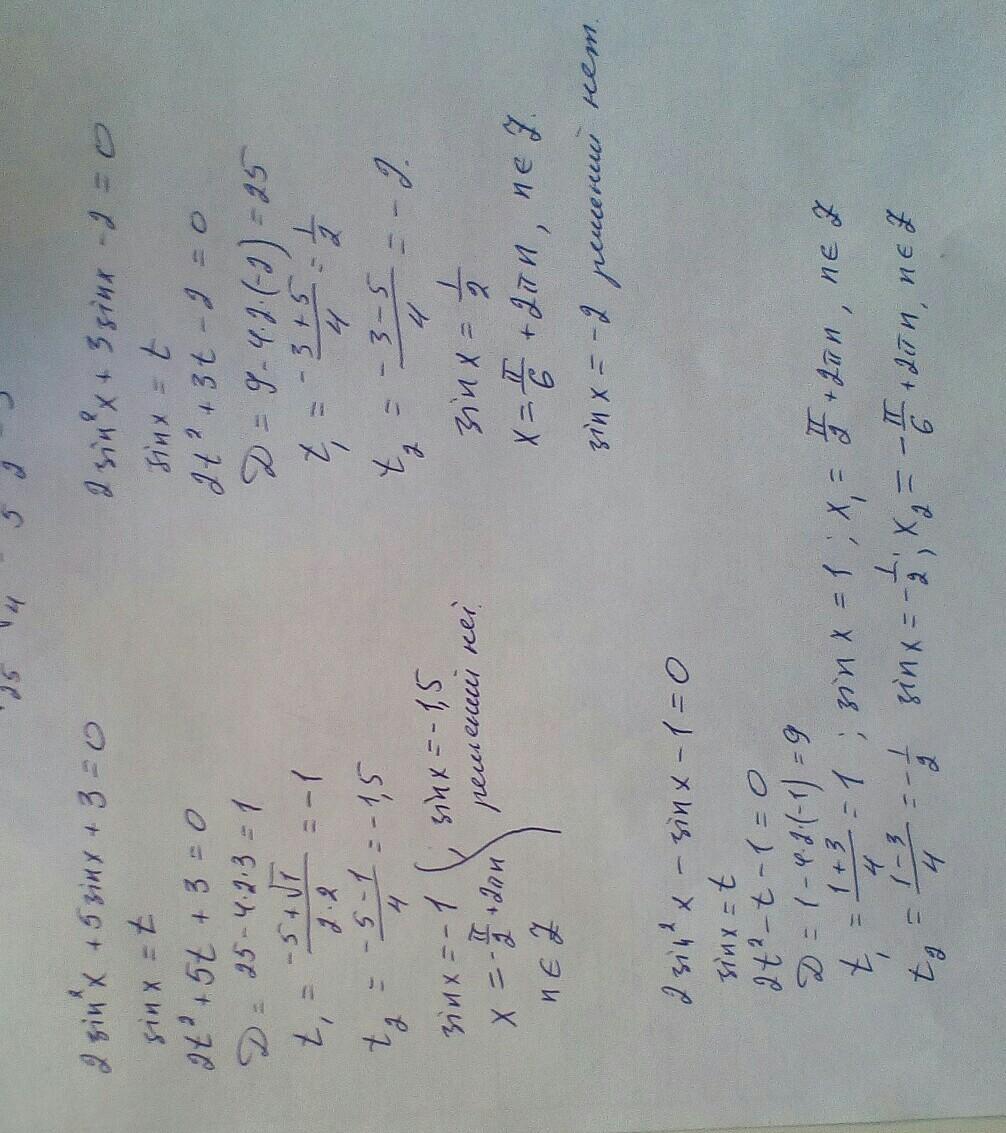 2 sin²x + 5 sinx + 3 = 0
sinx = t
2t² + 5t + 3 = 0
D = 25 - 4·2·3 = 1
t₁ = (-5+√1)/(2·2) = -1
t₂ = (-5-1)/4 = -1,5
sinx = -1 ; sinx = -1,5
x = -π/2 + 2πn решений нет.
n ∈ Z
2 sin²x + 3 sinx - 2 = 0
sinx = t
2t² + 3t - 2 = 0
D = 9 - 4·2·(-2) = 25
t₁ = (-3+5)/4 = 1/2
t₂ = (-3-5)/4 = -2.
sinx = 1/2
x = π/6 + 2πn, n ∈ Z.
sinx = -2 решений нет.
2 sin²x - sinx - 1 = 0
sinx = t
2t² - t - 1 = 0
D = 1 - 4·2·(-1) = 9
t₁ = (1+3)/4 = 1 ; sinx = 1 ; x₁ = π/2 + 2πn, n ∈ Z
t₂ = (1-3)/4 = -1/2 sinx = -1/2 ; x₂ = -π/6 + 2πn, n ∈ Z